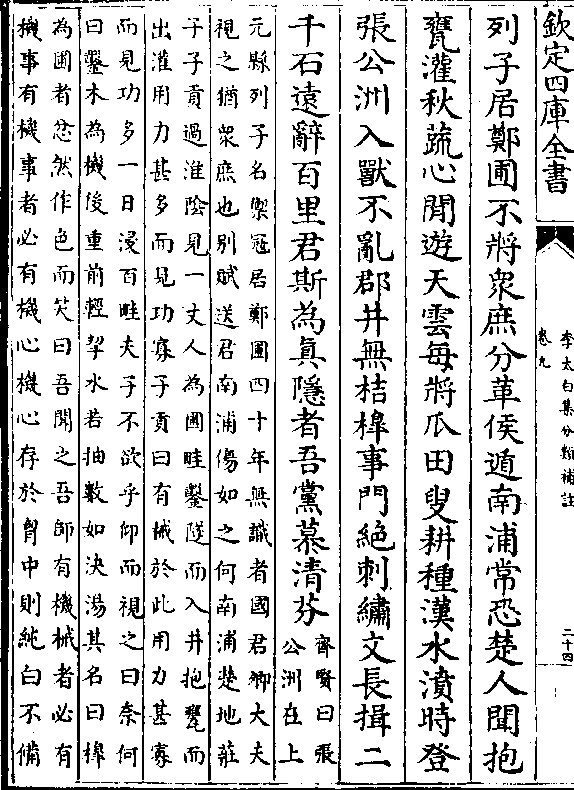 欽定四庫全書
李太白集分類補註
卷九
二十四
列子居鄭圃不將衆庶分革侯遁南浦常恐楚人聞抱
甕灌秋蔬心閒遊天雲每將瓜田叟耕種漢水濆時登
張公洲入獸不亂群井無桔橰事門絶刺繡文長揖二
千石遠辭百里君斯為真隱者吾黨慕清芬
齊賢曰張
公洲在上
元縣列子名禦寇居鄭圃四十年無識者國君卿大夫
視之猶衆庶也別賦送君南浦傷如之何南浦楚地莊
子子貢過漢陰見一丈人為圃畦鑿隧而入井抱甕而
出灌用力甚多而見功寡子貢曰有械於此用力甚寡
而見功多一日浸百畦夫子不欲乎仰而視之曰奈何
曰鑿木為機後重前輕挈水若抽數如泆湯其名曰橰
為圃者忿然作色而笑曰吾聞之吾師有機械者必有
機事有機事者必有機心機心存於胷中則純白不備